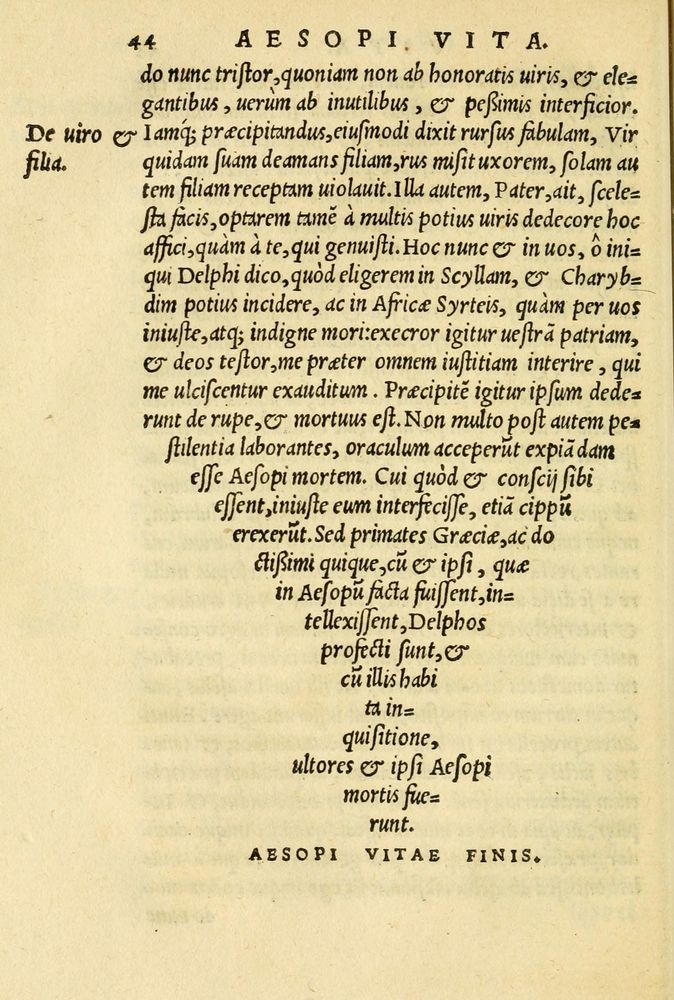 44 AESOPI VITA.
do nunc triſtor, quoniam non ab honoratis uiris, & ele=
gantibus, uerùm ab inutilibus, & peßimis interficior.
De uiro & filia.
Iamq́; præcipitandus, eiuſmodi dixit rurſus fabulam, Vir
quidam ſuam deamans filiam, rus miſit uxorem, ſolam au
tem filiam receptam uiolauit. Illa autem, Pater, ait, ſcele=
ſta facis, optarem tamẽ à multis potius uiris dedecore hoc
affici, quàm à te, qui genuiſti. Hoc nunc & in uos, ô ini=
qui Delphi dico, quòd eligerem in Scyllam, & Charyb=
dim potius incidere, ac in Africæ Syrteis, quàm per uos
iniuſte, atq; indigne mori: execror igitur ueſtrã patriam,
& deos teſtor, me præter omnem iuſtitiam interire, qui
me ulciſcentur exauditum. Præcipitẽ igitur ipſum dede=
runt de rupe, & mortuus eſt. Non multo poſt autem pe=
ſtilentia laborantes, oraculum acceperũt expiãdam
eſſe Aeſopi mortem. Cui quòd & conſcij ſibi
eſſent, iniuſte eum interfeciſſe, etiã cippũ
erexerũt. Sed primates Græciæ, ac do
ctißimi quique, cũ & ipſi, quæ
in Aeſopũ facta fuiſſent, in=
tellexiſſent, Delphos
profecti ſunt, &
cũ illis habi
ta in=
quiſitione,
ultores & ipſi Aeſopi
mortis fue=
runt.
AESOPI VITAE FINIS.